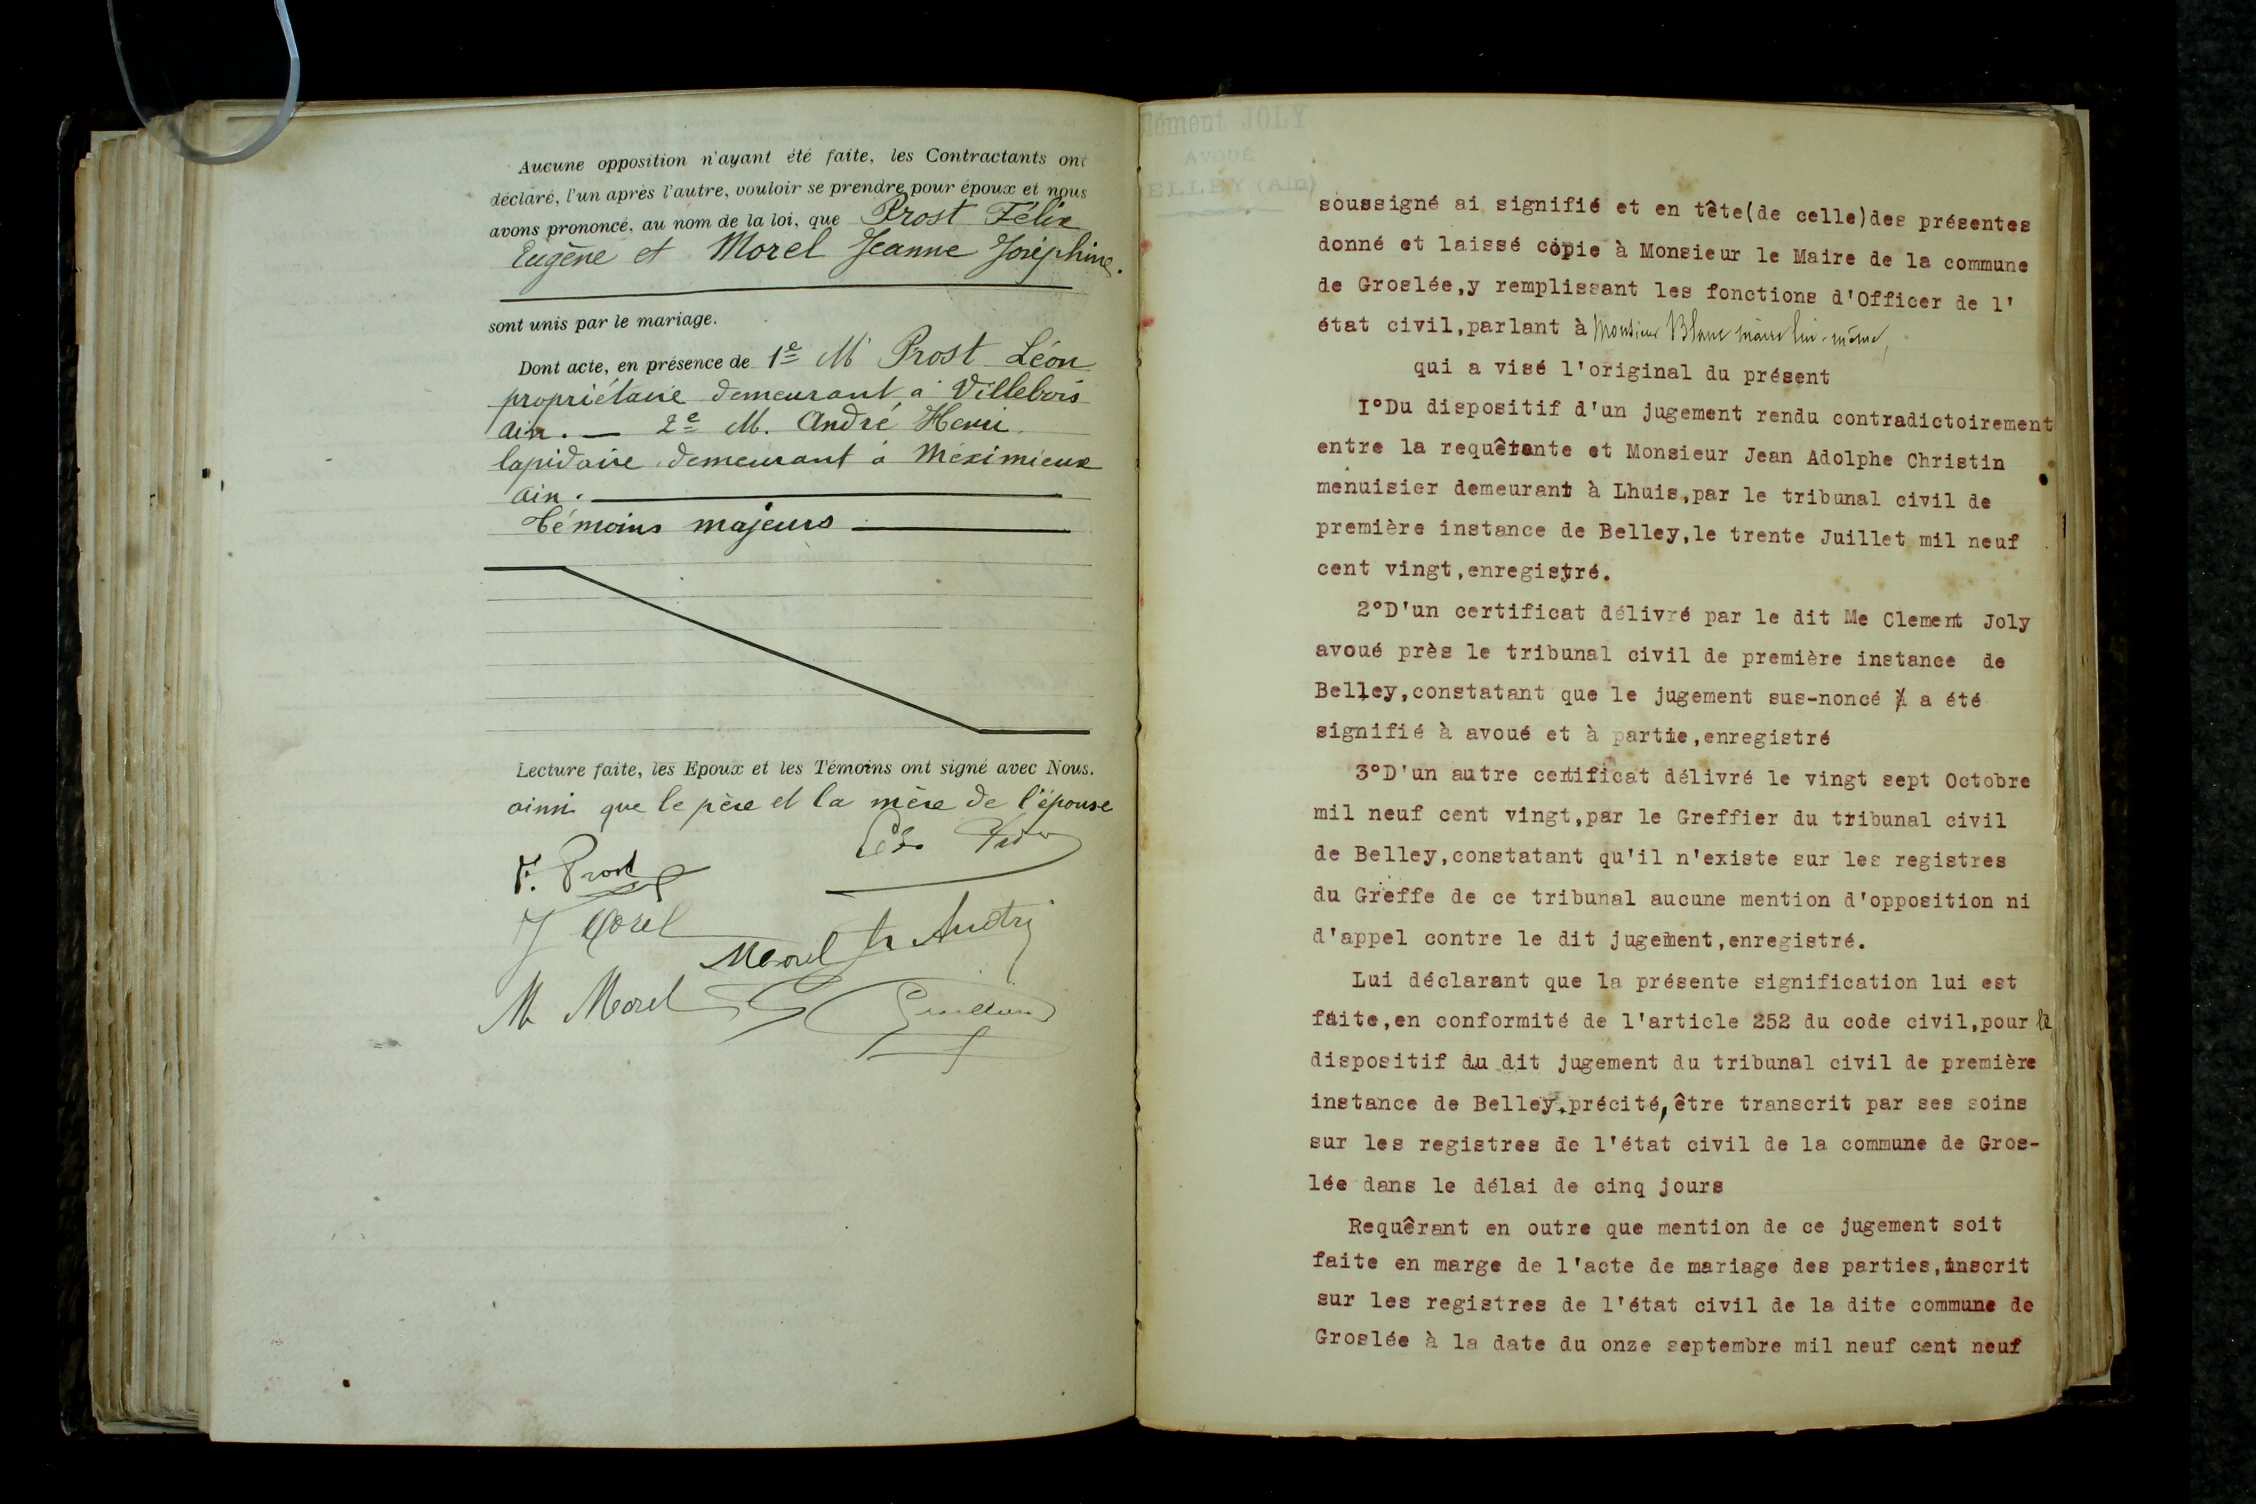 Aucune opposition n'ayant été faite, les Contractants ont
déclaré, l'un après l'autre, vouloir se prendre pour époux et nous
avons prononcé, au nom de la loi, que Prost Félix
Eugène et Morel Jeanne Joséphine.
sont unis par le mariage.
Dont acte, en présence de 1e M Prost Léon
propriétaire demeurant à Villebois
ain. — 2e M. André Henri
lapidaire demeurant à Méximieux
ain.
témoins majeurs
Lecture faite, les Epoux et les Témoins ont signé avec Nous.
ainsi que le père et la mère de l'épouse
F. Prost
J Morel
Morel
M Morel
Clément JOLY
AVOUÉ
BELLEY (Ain)
soussigné ai signifié et en tête(de celle)des présentes
donné et laissé copie à Monsieur le Maire de la commune
de Groslée,y remplissant les fonctions d'Officer de l'
état civil,parlant à Monsieur Blanc maire lui-même,
qui a visé l'original du présent
I°Du dispositif d'un jugement rendu contradictoirement
entre la requêtante et Monsieur Jean Adolphe Christin
menuisier demeurant à Lhuis,par le tribunal civil de
première instance de Belley,le trente Juillet mil neuf
cent vingt,enregistré.
2°D'un certificat délivré par le dit Me Clement Joly
avoué près le tribunal civil de première instance de
Belley,constatant que le jugement sus-noncé a été
signifié à avoué et à partie,enregistré
3°D'un autre certificat délivré le vingt sept Octobre
mil neuf cent vingt,par le Greffier du tribunal civil
de Belley,constatant qu'il n'existe sur les registres
du Greffe de ce tribunal aucune mention d'opposition ni
d'appel contre le dit jugement,enregistré.
Lui déclarant que la présente signification lui est
faite,en conformité de l'article 252 du code civil,pour le
dispositif du dit jugement du tribunal civil de première
instance de Belley.précité,être transcrit par ses soins
sur les registres de l'état civil de la commune de Gros-
lée dans le délai de cinq jours
Requêrant en outre que mention de ce jugement soit
faite en marge de l'acte de mariage des parties,inscrit
sur les registres de l'état civil de la dite commune de
Groslée à la date du onze septembre mil neuf cent neuf